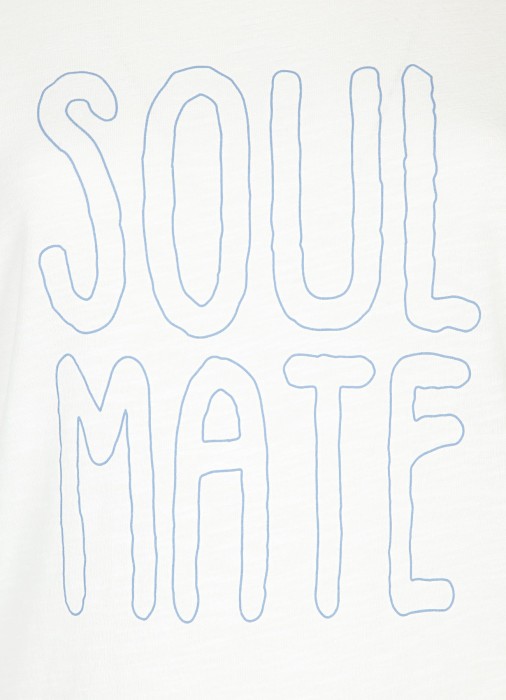 SOUL
MATE